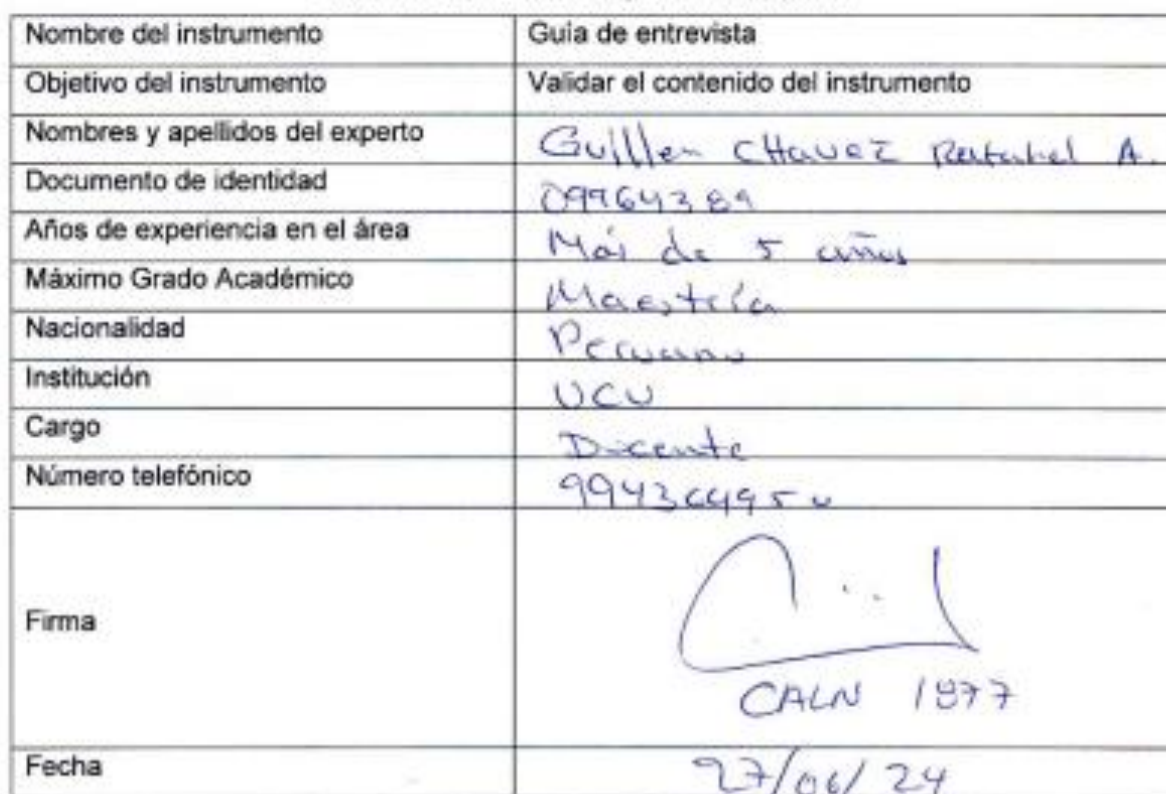 Nombre del instrumento Guia de entrevista
Objetivo del instrumento Validar el contenido del instrumento
Nombres y apellidos del experto Guillen CHavez Rafahel A.
Documento de identidad 09964389
Años de experiencia en el área Más de 5 años
Máximo Grado Académico Maestría
Nacionalidad Peruano
Institución UCV
Cargo Docente
Número telefónico
Firma
CALN 1877
Fecha 27/06/24